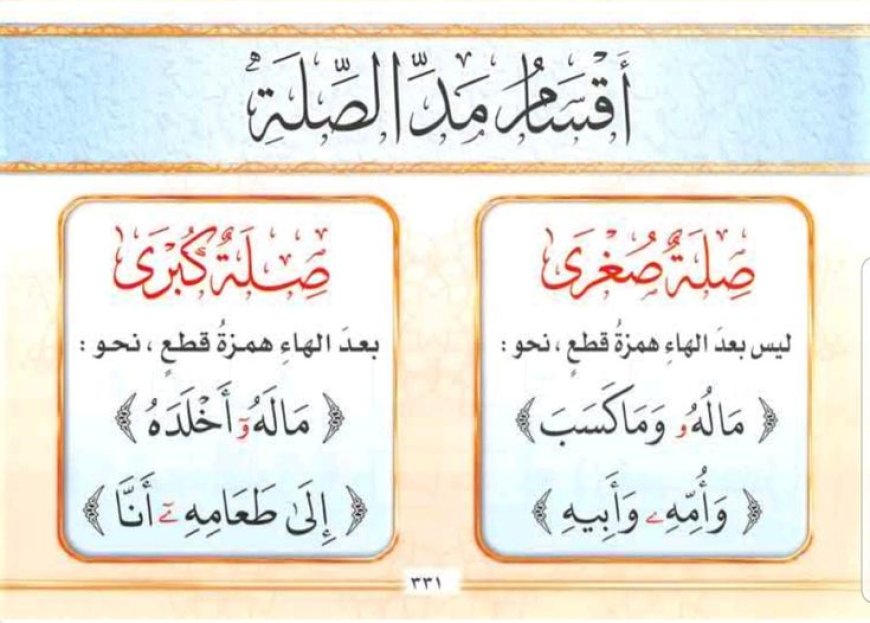 أَقْسَامُ مَدِّ الصِّلَةِ
صِلَةٌ صُغْرَى
ليس بعدَ الهاءِ همزةُ قطعٍ ، نحو :
﴿ مَالُهُۥ وَمَا كَسَبَ ﴾
﴿ وَأُمِّهِۦ وَأَبِيهِ ﴾
صِلَةٌ كُبْرَى
بعدَ الهاءِ همزةُ قطعٍ ، نحو :
﴿ مَالَهُۥٓ أَخْلَدَهُ ﴾
﴿ إِلَىٰ طَعَامِهِۦٓ أَنَّا ﴾
٣٣١